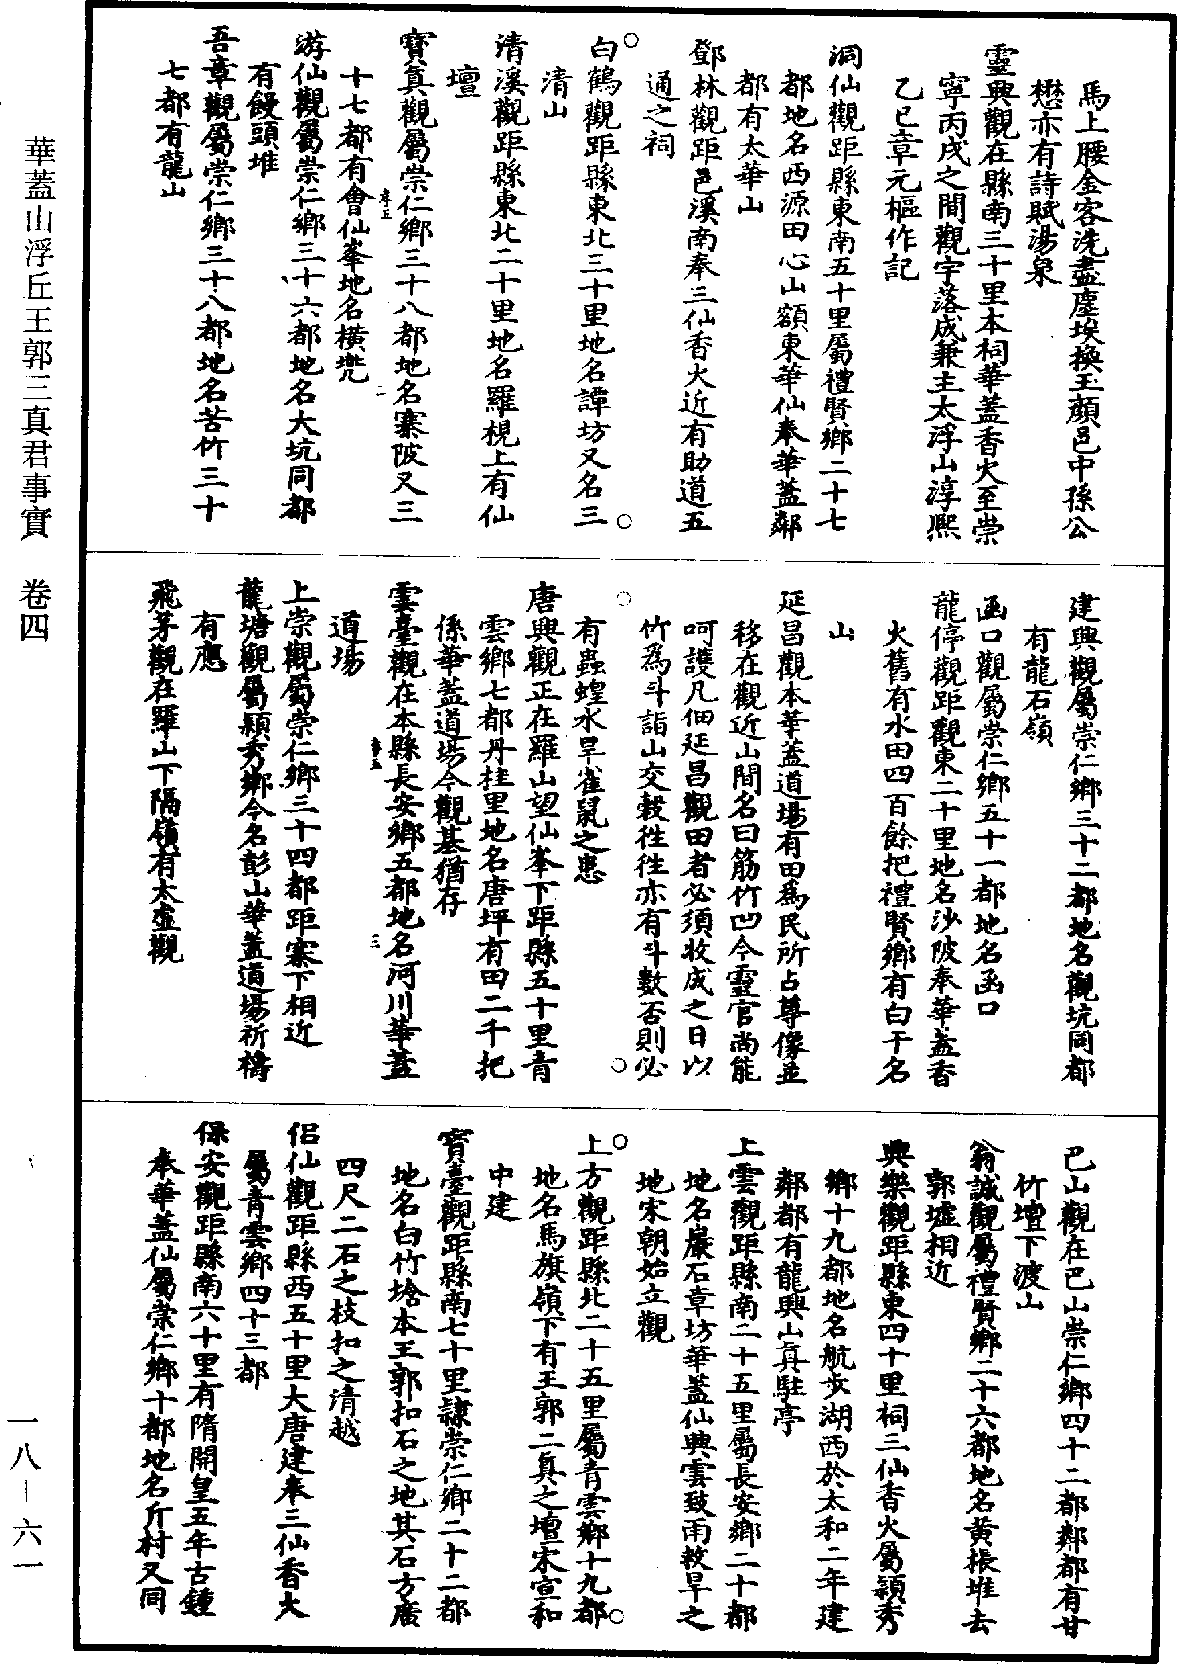 馬上腰金客洗盡塵埃換玉顏邑中孫公
懋亦有詩賦湯泉
靈興觀在縣南三十里本祠華蓋香火至崇
寧丙戌之間觀宇落成兼主太浮山淳熙
乙巳章元樞作記
洞仙觀距縣東南五十里屬禮賢鄉二十七
都地名西源田心山額東華仙奉華蓋鄰
都有太華山
鄧林觀距邑溪南奉三仙香火近有助道五
通之祠
白鶴觀距縣東北三十里地名譚坊又名三
清山
清溪觀距縣東北二十里地名羅梘上有仙
壇
寶真觀屬崇仁鄉三十八都地名寨陂又三
十七都有會仙峯地名橫兠
游仙觀屬崇仁鄉三十六都地名大坑同都
有饅頭堆
吾章觀屬崇仁鄉三十八都地名苦竹三十
七都有龍山
建興觀屬崇仁鄉三十二都地名觀坑同都
有龍石嶺
函口觀屬崇仁鄉五十一都地名函口
龍停觀距觀東二十里地名沙陂奉華蓋香
火舊有水田四百餘把禮賢鄉有白干名
山
延昌觀本華蓋道場有田為民所占尊像並
移在觀近山間名曰筋竹凹今靈官尚能
呵護凡佃延昌觀田者必須收成之日以
竹為斗詣山交穀往往亦有斗數否則必
有蟲蝗水旱雀鼠之患
唐興觀正在羅山望仙峯下距縣五十里青
雲鄉七都丹桂里地名唐坪有田二千把
係華蓋道場今觀基猶存
雲臺觀在本縣長安鄉五都地名河川華蓋
道場
上崇觀屬崇仁鄉三十四都距寨下相近
龍塘觀屬穎秀鄉今名彭山華蓋道場祈禱
有應
飛茅觀在羅山下隔嶺有太虛觀
巴山觀在巴山崇仁鄉四十二都鄰都有甘
竹壇下渡山
翁誠觀屬禮賢鄉二十六都地名黃掁堆去
郭墟相近
興樂觀距縣東四十里祠三仙香火屬穎秀
鄉十九都地名航步湖西於太和二年建
鄰都有龍興山真駐亭
上雲觀距縣南二十五里屬長安鄉二十都
地名巖石章坊華蓋仙興雲致雨救旱之
地宋朝始立觀
上方觀距縣北二十五里屬青雲鄉十九都
地名馬旗嶺下有王郭二真之壇宋宣和
中建
寶臺觀距縣南七十里隸崇仁鄉二十二都
地名白竹埨本王郭扣石之地其石方廣
四尺二石之枝扣之清越
侶仙觀距縣西五十里大唐建奉三仙香火
屬青雲鄉四十三都
保安觀距縣南六十里有隋開皇五年古鍾
奉華蓋仙屬崇仁鄉十都地名斤村又同
華蓋山浮丘王郭三真君事實　卷四
一八—六一